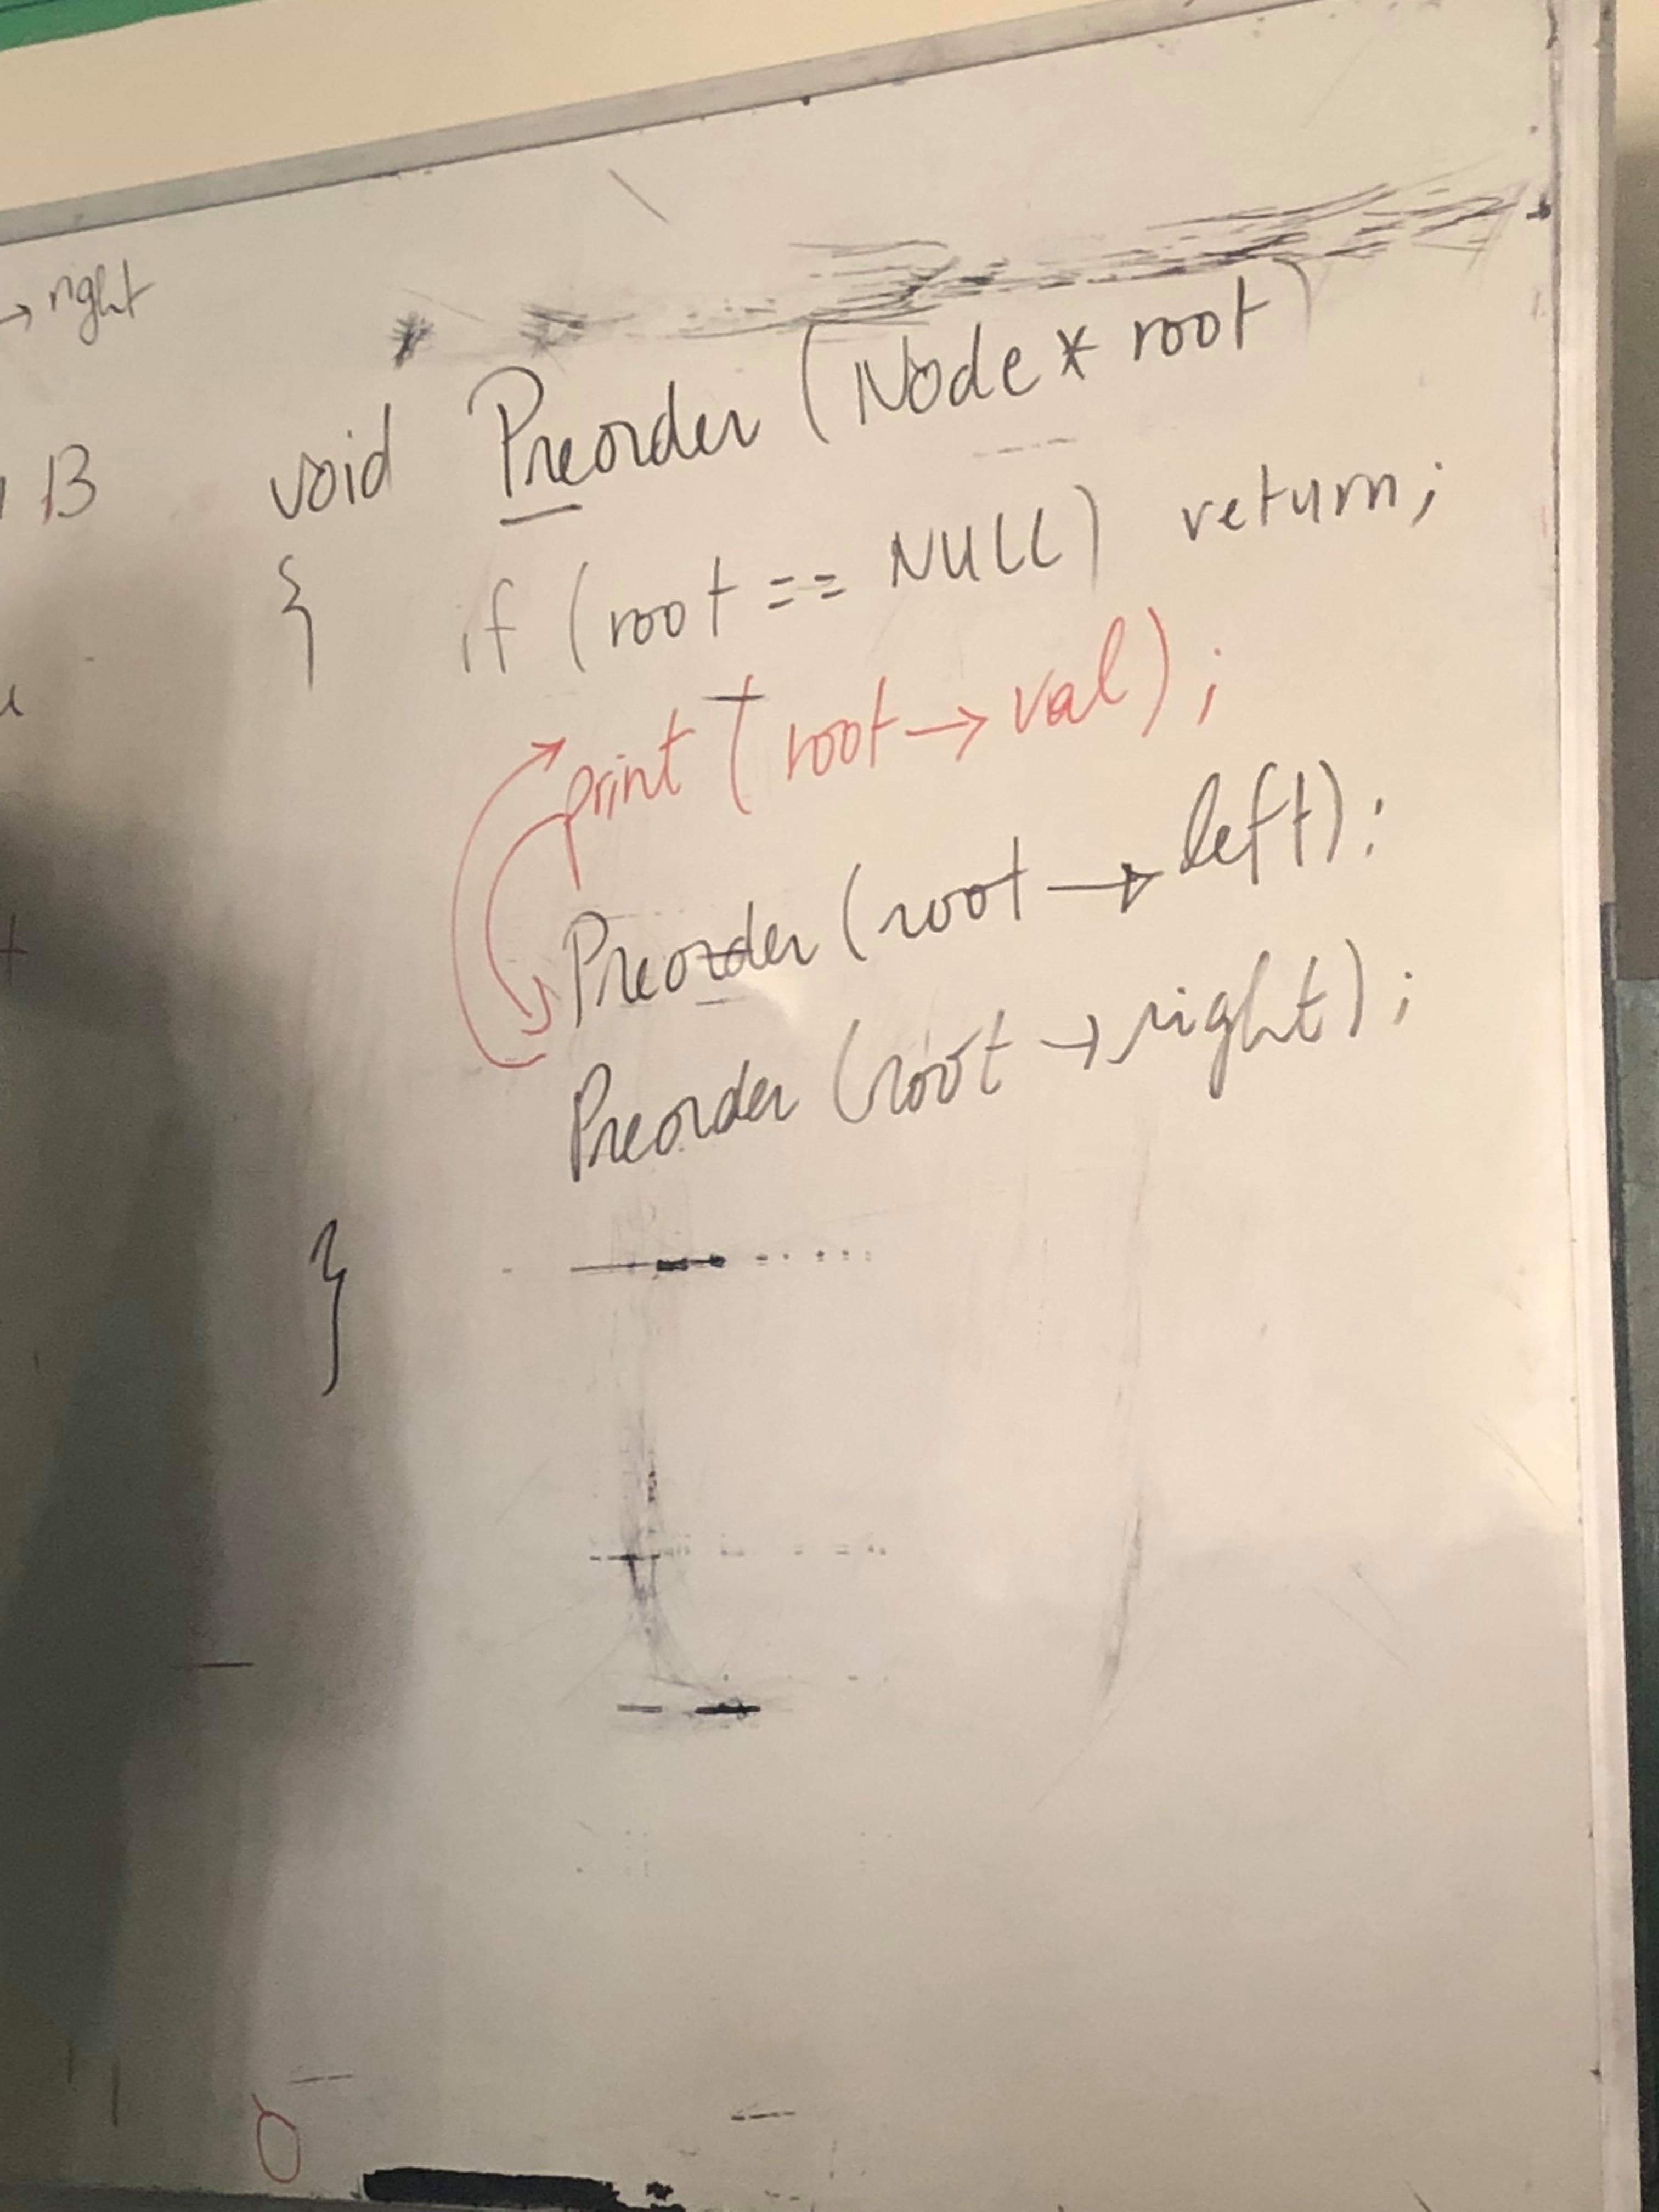 → right
13
void Preorder (Node * root)
{ if (root == NULL) return;
print (root → val);
Preorder (root → left);
Preorder (root → right);
}